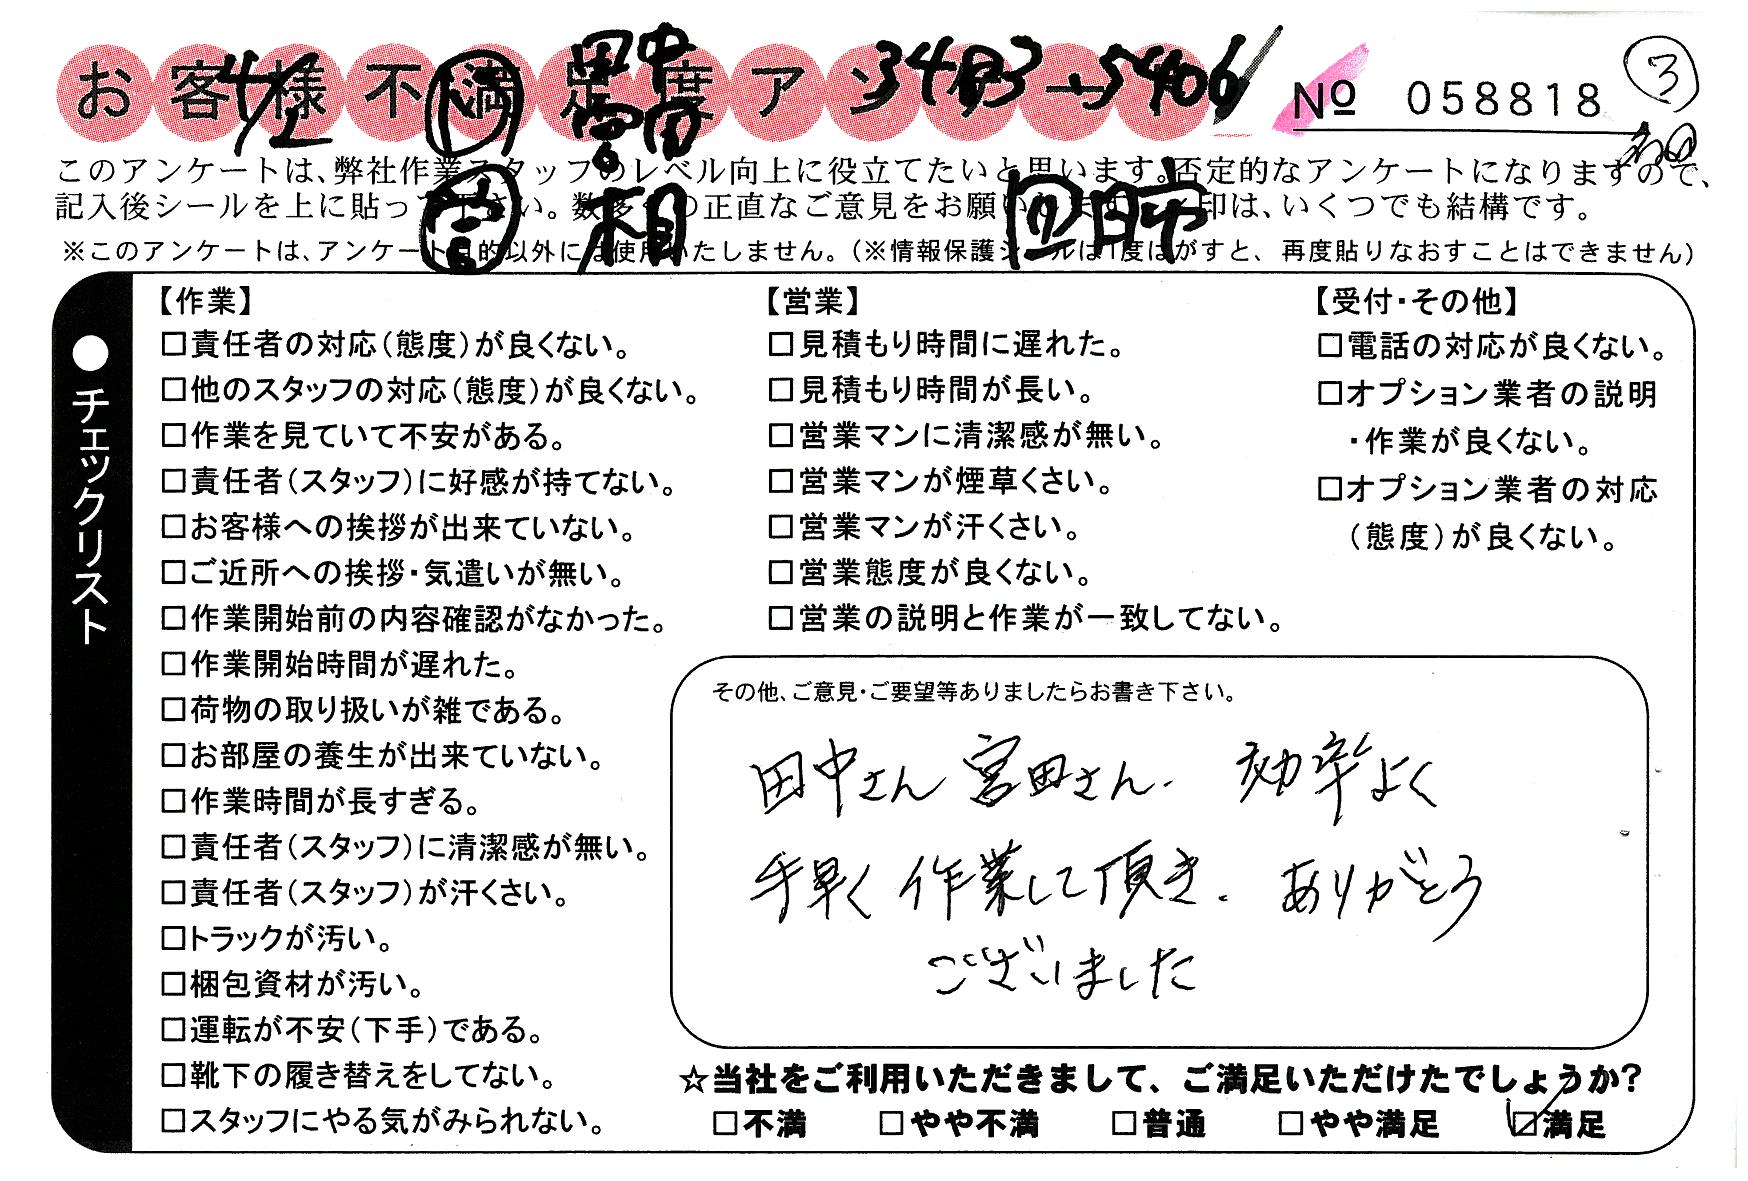 お客様不満足度アン
4/2
田中
宮田
3483→5406
№ 058818
③
このアンケートは、弊社作業スタッフのレベル向上に役立てたいと思います。否定的なアンケートになりますので、
記入後シールを上に貼って下さい。数多くの正直なご意見をお願いします。レ印は、いくつでも結構です。
相
四日市
※このアンケートは、アンケート目的以外には使用いたしません。(※情報保護シールは1度はがすと、再度貼りなおすことはできません)
●チェックリスト
【作業】
□責任者の対応(態度)が良くない。
□他のスタッフの対応(態度)が良くない。
□作業を見ていて不安がある。
□責任者(スタッフ)に好感が持てない。
□お客様への挨拶が出来ていない。
□ご近所への挨拶・気遣いが無い。
□作業開始前の内容確認がなかった。
□作業開始時間が遅れた。
□荷物の取り扱いが雑である。
□お部屋の養生が出来ていない。
□作業時間が長すぎる。
□責任者(スタッフ)に清潔感が無い。
□責任者(スタッフ)が汗くさい。
□トラックが汚い。
□梱包資材が汚い。
□運転が不安(下手)である。
□靴下の履き替えをしてない。
□スタッフにやる気がみられない。
【営業】
□見積もり時間に遅れた。
□見積もり時間が長い。
□営業マンに清潔感が無い。
□営業マンが煙草くさい。
□営業マンが汗くさい。
□営業態度が良くない。
□営業の説明と作業が一致してない。
【受付・その他】
□電話の対応が良くない。
□オプション業者の説明
・作業が良くない。
□オプション業者の対応
(態度)が良くない。
その他、ご意見・ご要望等ありましたらお書き下さい。
田中さん 宮田さん、 効率よく
手早く 作業して頂き、ありがとう
ございました
☆当社をご利用いただきまして、ご満足いただけたでしょうか?
□不満 □やや不満 □普通 □やや満足 ☑満足